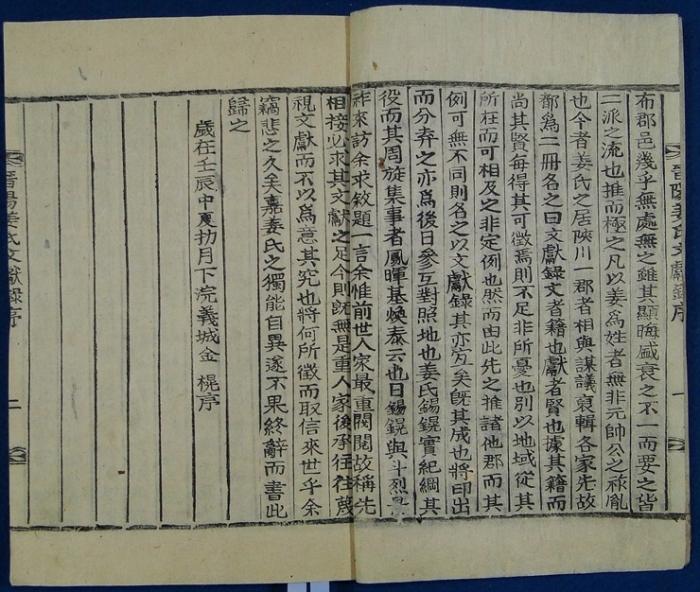 晉陽姜氏文獻錄序 一
布郡邑幾乎無處無之雖其顯晦盛衰之不一而要之皆
二派之流也推而極之凡以姜爲姓者無非元帥公之祿胤
也今者姜氏之居陜川一郡者相與謀議裒輯各家先故
都爲二冊名之曰文獻錄文者籍也獻者賢也據其籍而
尚其賢每得其可徵焉則不足非所憂也別以地域從其
所在而可相及之非定例也然而由此先之推諸他郡而其
例可無不同則名之以文獻錄其亦宜矣旣其成也將印出
而分弆之亦爲後日參互對照地也姜氏錫鎤實紀綱其
役而其周旋集事者鳳暉基煥泰云也日錫鎤與斗烈
昨來訪余求敘題一言余惟前世人家最重閥閱故稱先
相接必求其文獻之足今則旣無是重人家後承往往蔑
視文獻而不以爲意其究也將何所徵而取信來世乎余
竊悲之久矣嘉姜氏之獨能自異遂不果終辭而書此
歸之
歲在壬辰中夏扐月下浣義城金 榥序
晉陽姜氏文獻錄序 二